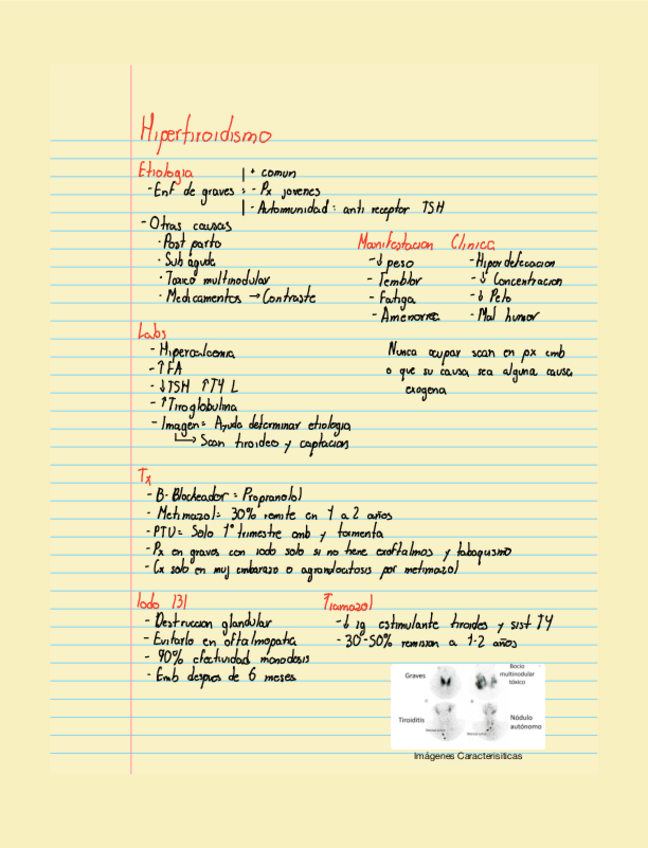 Hipertiroidismo
Etiologia | + comun
- Enf de graves : - Px jovenes
| - Autoimunidad: anti receptor TSH
- Otras causas
· Post parto
· Sub aguda
· Toxico multinodular
· Medicamentos → Contraste
Manifestacion Clinica
- ↓ peso - Hiperdefecacion
- Temblor - ↓ Concentracion
- Fatiga - ↓ Pelo
- Amenorrea - Mal humor
Labs
- Hipercalcemia
- ↑ FA
- ↓TSH ↑T4 L
- ↑ Tiroglobulina
- Imagen= Ayuda determinar etiologia
↳ Scan tiroideo y captacion
Nunca ocupar scan en px emb
o que su causa sea alguna causa
exogena
Tx
- B-Blockeador = Propranolol
- Metimazol= 30% remite en 1 a 2 años
- PTU= Solo 1° trimestre emb y tormenta
- Px en graves con iodo solo si no tiene exoftalmos y tabaquismo
- Cx solo en muj embarazo o agranulocitosis por metimazol
Iodo 131
- Destruccion glandular
- Evitarlo en oftalmopatia
- 90% efectividad monodosis
- Emb despues de 6 meses
Tiamazol
- ↓ ig estimulante tiroides y sist T4
- 30-50% remision a 1-2 años
Graves
Bocio
multinodular
tóxico
Tiroiditis
Nódulo
autónomo
Imágenes Caracterisiticas